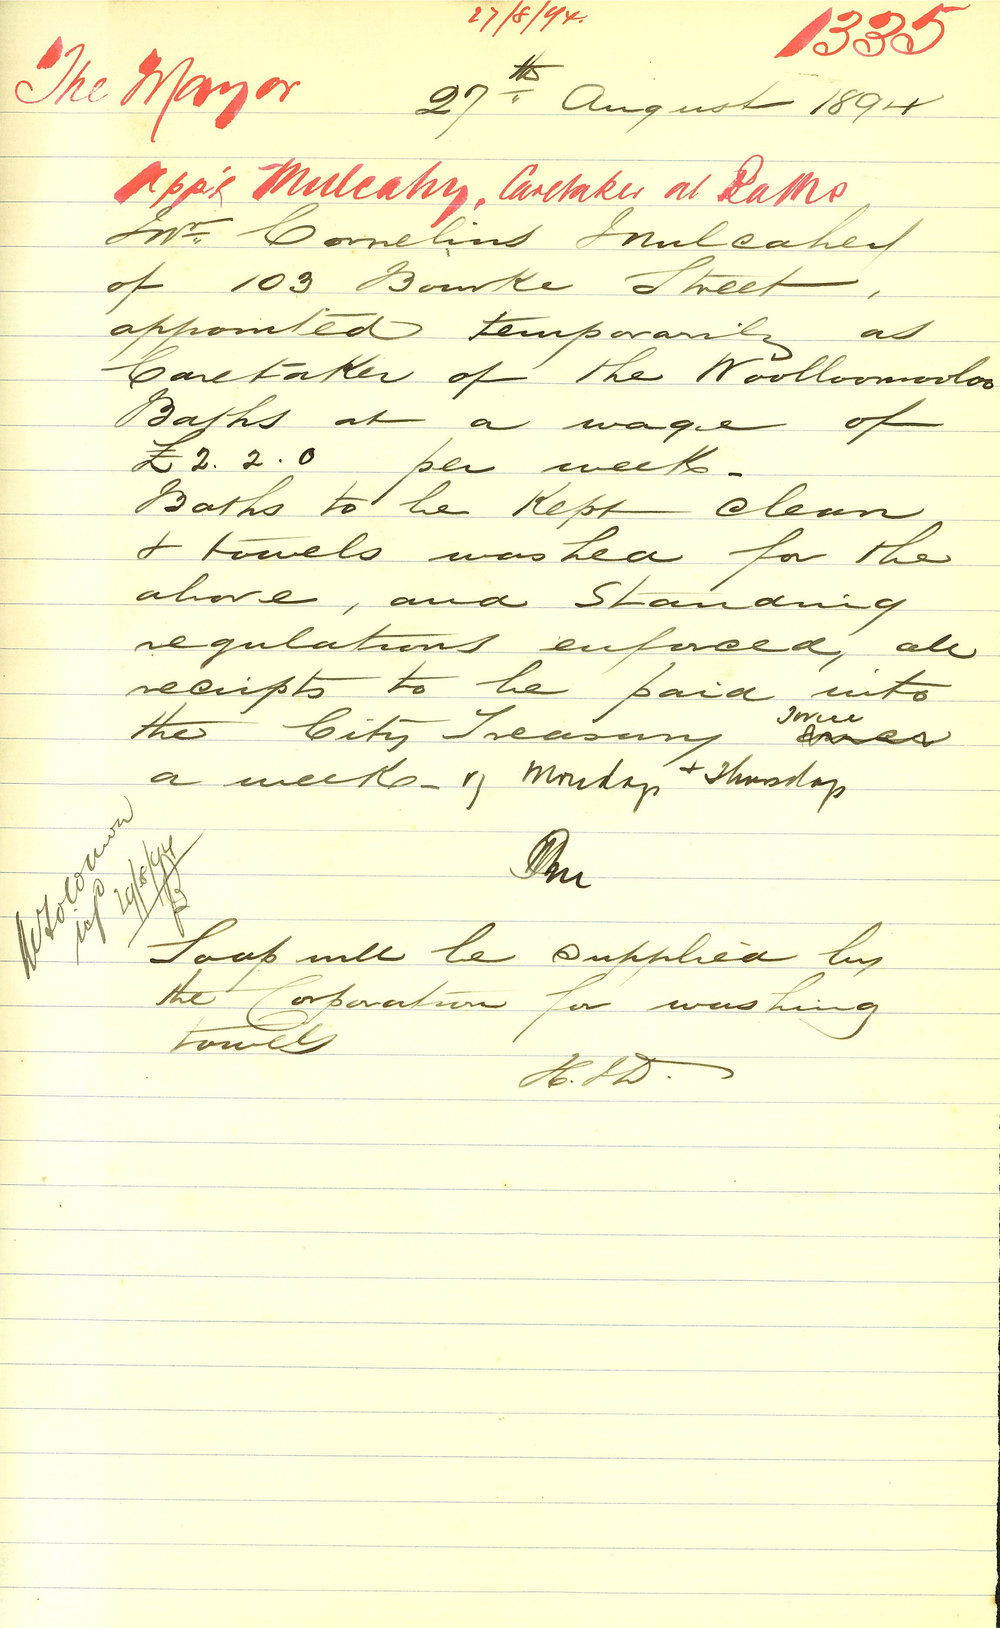 27/8/94.
1335
The Mayor
27th August 1894
App't Mulcahy, Caretaker at Baths
Mr. Cornelius Mulcahey
of 103 Bourke Street,
appointed temporarily as
Caretaker of the Woolloomooloo
Baths at a wage of
£2.2.0 per week -
Baths to be kept clean
& towels washed for the
above, and Standing
regulations enforced, all
receipts to be paid into
the City Treasury twice
a week - Mondays & Thursdays
29/8/94
Soap will be supplied by
the Corporation for washing
towels